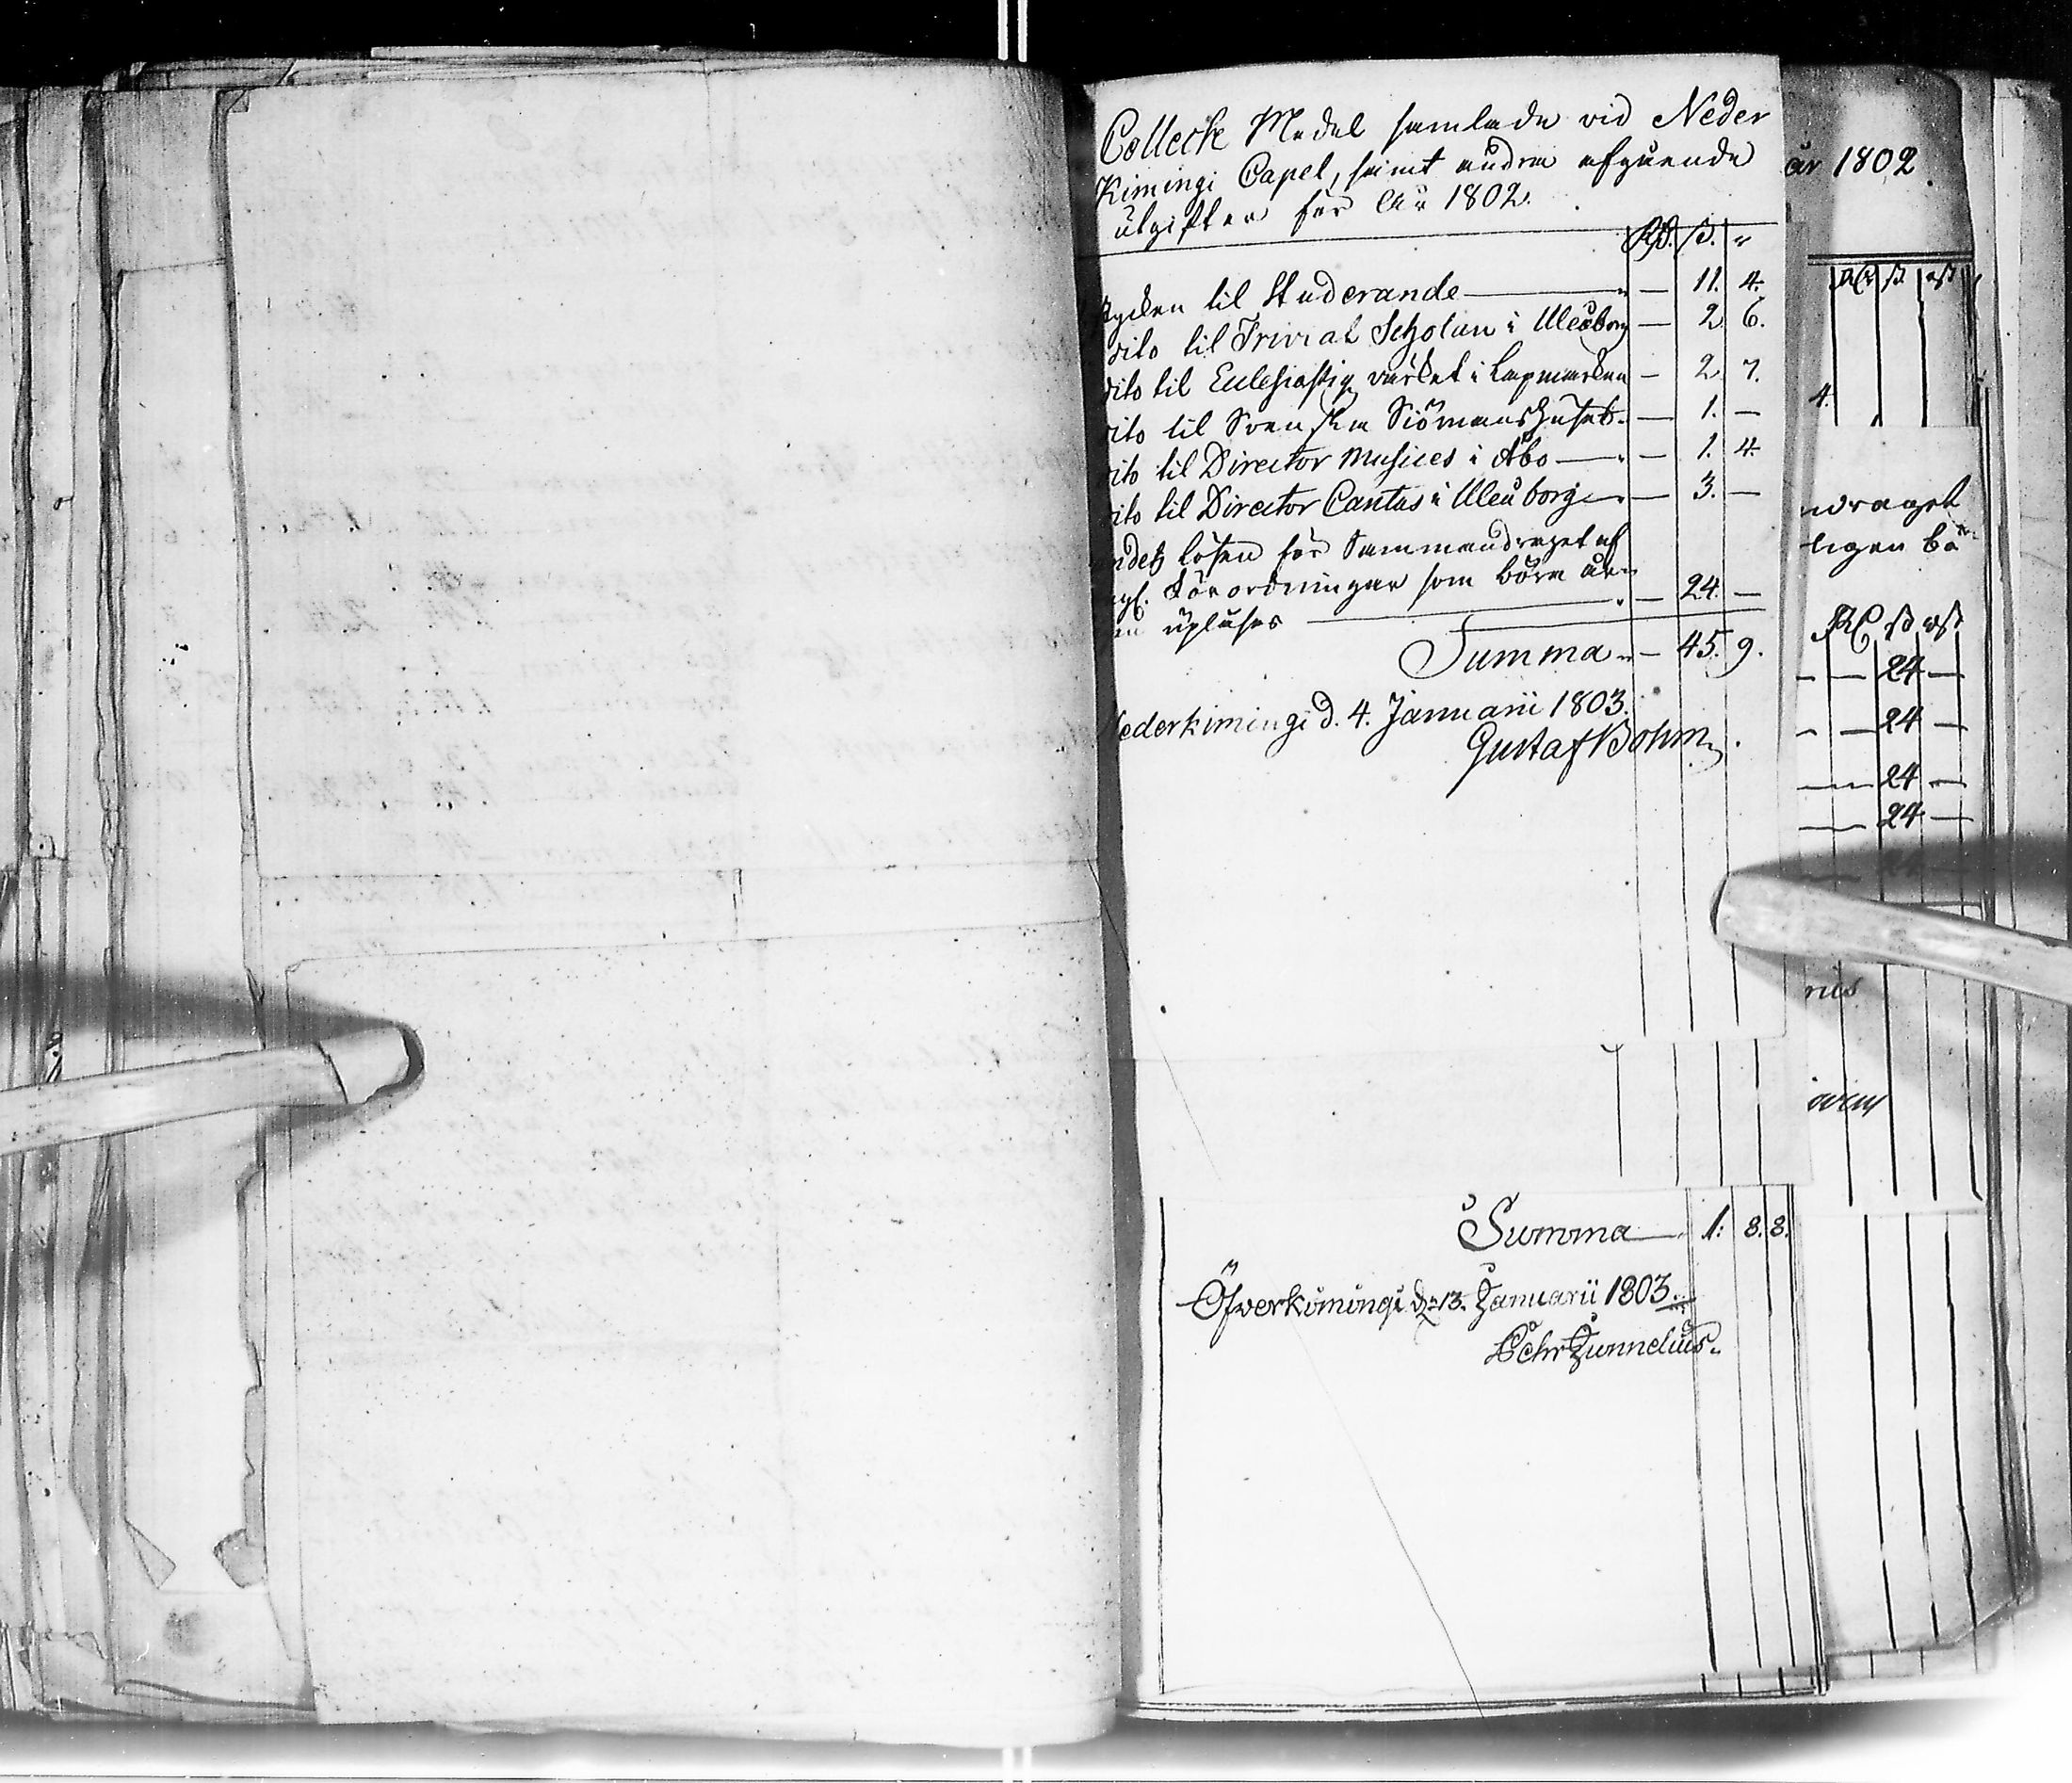 Colleck Medel samlade vid Neder
Kimingi Capel, samt andra afgående
utgifter för År 1802.
Rd. ß.
til Studerande — 11. 4.
dito til Trivial Scholan i Uleåborg — 2. 6.
dito til Ecclesiastiq värket i Lapmarken — 2. 7.
dito til Svenska Siömanshuset — 1. —
dito til Director Musices i Åbo — 1. 4.
dito til Director Cantus i Uleåborg — 3. —
lösen för Sammandraget af
Förordningar som böra år
upläsas — 24. —
Summa — 45. 9.
Nederkimingi d. 4. Januarii 1803.
Gustaf Bohm
Summa 1. 8. 8.
Öfverkimingi d. 13. Januarii 1803.
Pehr Zunnelius.
år 1802
4.
ndraget
ligen bö
24 —
24 —
24 —
24 —
rus